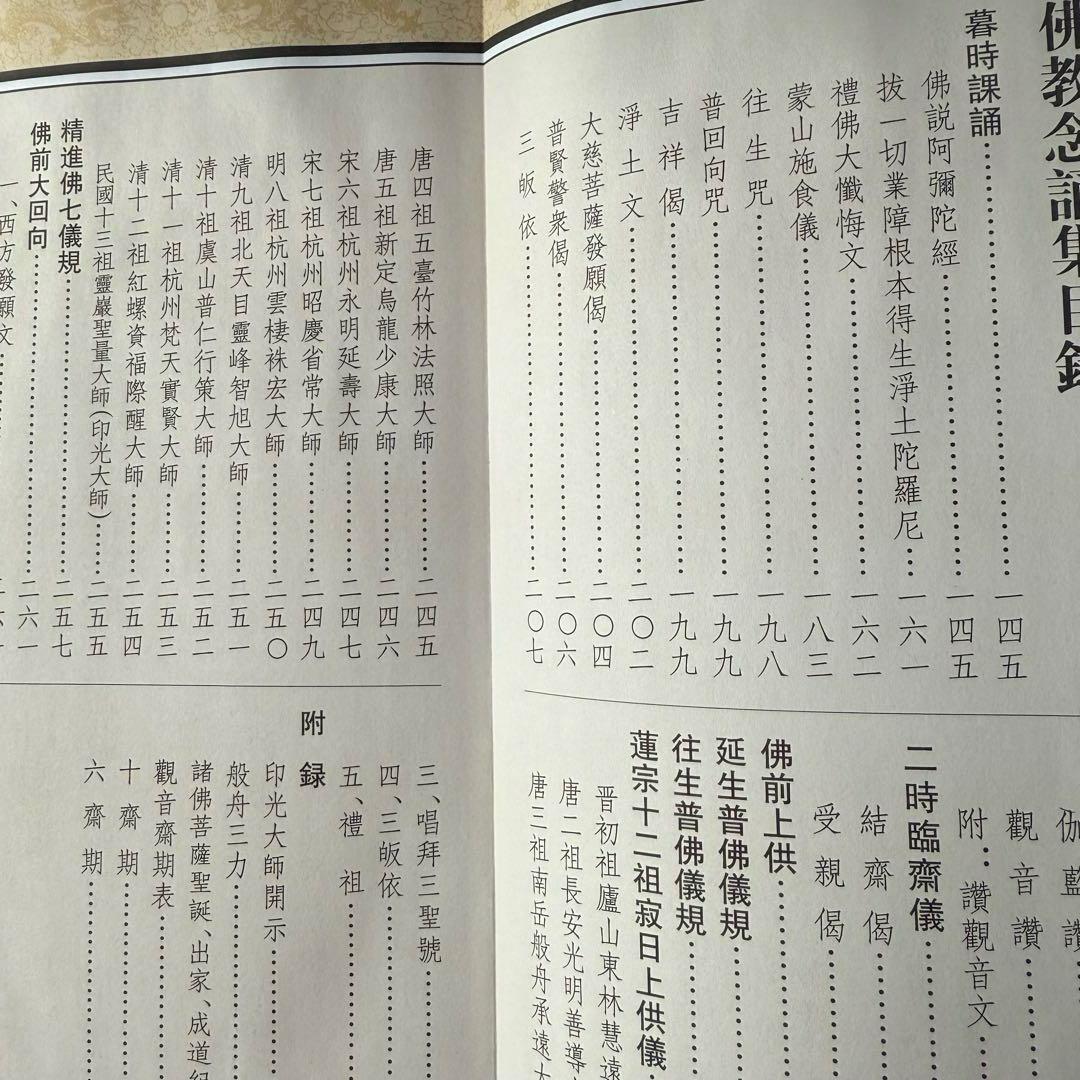 佛教念誦集目錄
暮時課誦……一四五
佛說阿彌陀經……一四五
拔一切業障根本得生淨土陀羅尼……一六一
禮佛大懺悔文……一六二
蒙山施食儀……一八三
往生咒……一九八
普回向咒……一九九
吉祥偈……一九九
淨土文……二〇二
大慈菩薩發願偈……二〇四
普賢警衆偈……二〇六
三皈依……二〇七
伽藍讚……
觀音讚……
附：讚觀音文……
二時臨齋儀……
結齋偈……
受親偈……
佛前上供……
延生普佛儀規……
往生普佛儀規……
蓮宗十二祖寂日上供儀…
晋初祖廬山東林慧遠
唐二祖長安光明善導
唐三祖南岳般舟承遠大
唐四祖五臺竹林法照大師……二四五
唐五祖新定烏龍少康大師……二四六
宋六祖杭州永明延壽大師……二四七
宋七祖杭州昭慶省常大師……二四九
明八祖杭州雲棲袾宏大師……二五〇
清九祖北天目靈峰智旭大師……二五一
清十祖虞山普仁行策大師……二五二
清十一祖杭州梵天實賢大師……二五三
清十二祖紅螺資福際醒大師……二五四
民國十三祖靈巖聖量大師(印光大師)……二五五
精進佛七儀規……二五七
佛前大回向……二六一
一、西方發願文……
三、唱拜三聖號……
四、三皈依……
五、禮祖……
附錄
印光大師開示……
般舟三力……
諸佛菩薩聖誕、出家、成道紀
觀音齋期表……
十齋期……
六齋期……